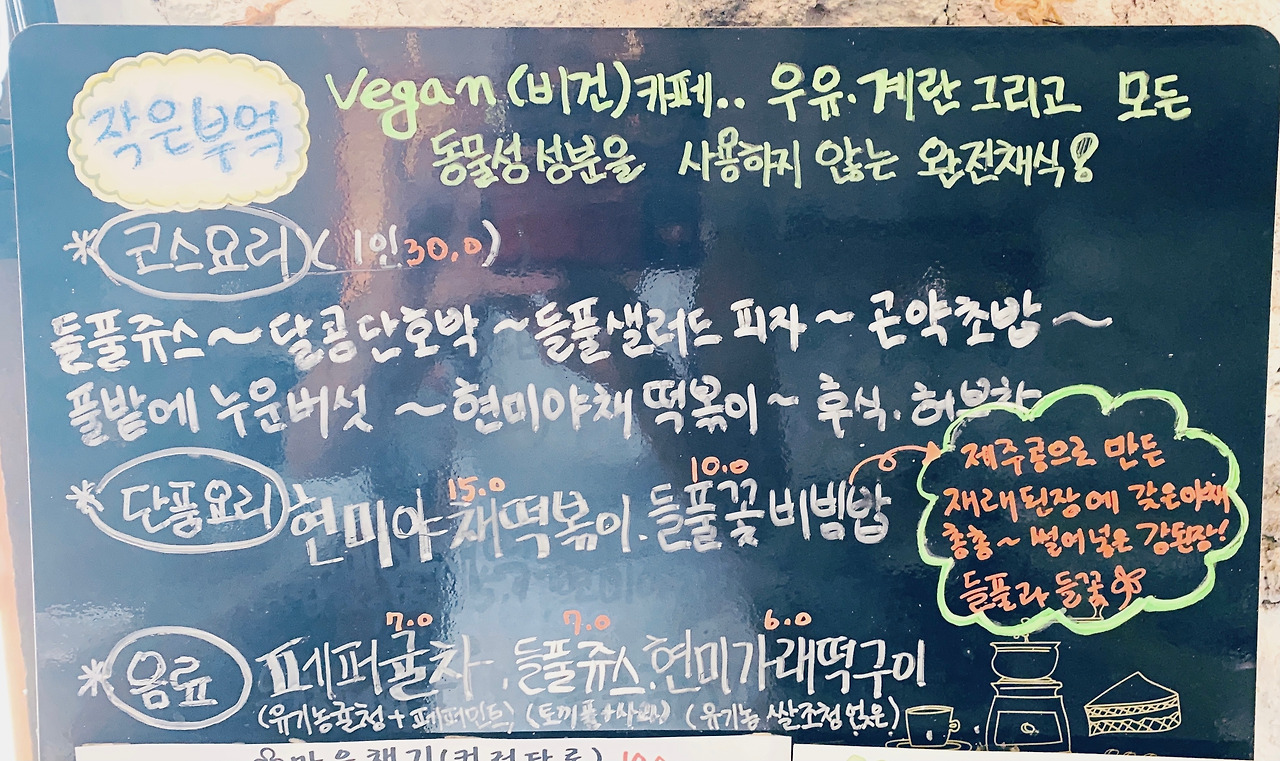 작은부엌
Vegan (비건)카페.. 우유.계란 그리고 모든
동물성 성분을 사용하지 않는 완전채식!
*코스요리 (1인 30,0)
들풀쥬스~달콤단호박~들풀샐러드 피자~곤약초밥~
풀밭에 누운버섯 ~현미야채 떡볶이~ 후식. 허브차
*단품요리 현미야채떡볶이. 15.0 들풀꽃비빔밥 10.0
제주콩으로 만든
재래된장에 갖은야채
총총~ 썰어넣은 강된장!
들풀과 들꽃
*음료 페퍼귤차 7.0 .들풀쥬스 7.0 .현미가래떡구이 6.0
(유기농귤청+페퍼민트) (토끼풀+사과) (유기농 쌀조청 얹은)